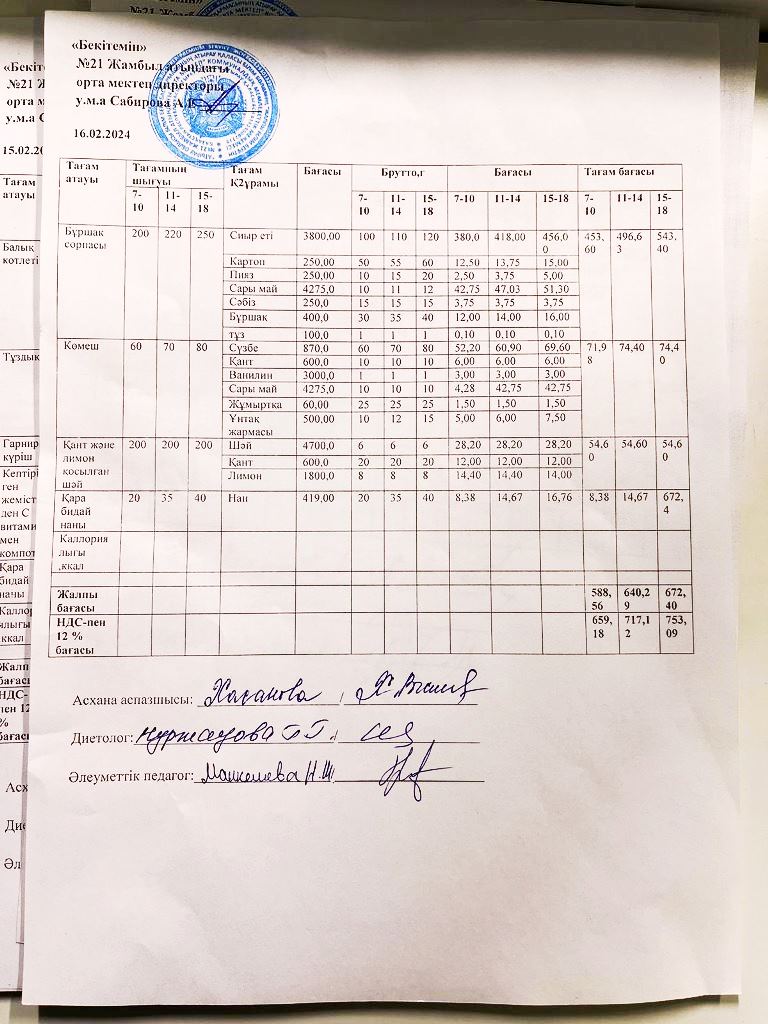 «Бекітемін»
№21 Жамбыл атындағы
орта мектеп директоры
у.м.а Сабирова А.Б
16.02.2024
Тағам атауы Тағамның шығуы Тағам Қ2ұрамы Бағасы Брутто,г Бағасы Тағам бағасы
7-10 11-14 15-18 7-10 11-14 15-18 7-10 11-14 15-18 7-10 11-14 15-18
Бұршақ сорпасы 200 220 250 Сиыр еті 3800,00 100 110 120 380,0 418,00 456,00 453,60 496,63 543,40
Картоп 250,00 50 55 60 12,50 13,75 15,00
Пияз 250,00 10 15 20 2,50 3,75 5,00
Сары май 4275,0 10 11 12 42,75 47,03 51,30
Сәбіз 250,0 15 15 15 3,75 3,75 3,75
Бұршақ 400,0 30 35 40 12,00 14,00 16,00
тұз 100,0 1 1 1 0,10 0,10 0,10
Көмеш 60 70 80 Сүзбе 870,0 60 70 80 52,20 60,90 69,60 71,98 74,40 74,40
Қант 600,0 10 10 10 6,00 6,00 6,00
Ванилин 3000,0 1 1 1 3,00 3,00 3,00
Сары май 4275,0 10 10 10 4,28 42,75 42,75
Жұмыртқа 60,00 25 25 25 1,50 1,50 1,50
Ұнтақ жармасы 500,00 10 12 15 5,00 6,00 7,50
Қант және лимон қосылған шәй 200 200 200 Шәй 4700,0 6 6 6 28,20 28,20 28,20 54,60 54,60 54,60
Қант 600,0 20 20 20 12,00 12,00 12,00
Лимон 1800,0 8 8 8 14,40 14,40 14,00
Қара бидай наны 20 35 40 Нан 419,00 20 35 40 8,38 14,67 16,76 8,38 14,67 672,4
Каллория лығы ,ккал
Жалпы бағасы 588,56 640,29 672,40
НДС-пен 12 % бағасы 659,18 717,12 753,09
Асхана аспазшысы: Хасанова
Диетолог:
Әлеуметтік педагог:
15.02.20
Тағам
атауы
Балық
котлеті
Тұздық
Гарнир
күріш
Кептіріген
жеміст
ден С
витами
мен
компот
Қара
бидай
наны